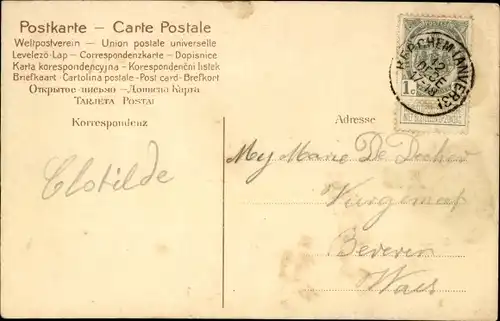 Postkarte – Carte Postale
Weltpostverein – Union postale universelle
Levelező-Lap – Correspondenzkarte – Dopisnice
Karta korespondencyjna – Korespondenční lístek
Briefkaart – Cartolina postale – Post card – Brefkort
Открытое письмо – Дописна Карта
TARJETA POSTAL
Korrespondenz
Adresse
BERCHEM (ANVERS)
12
1c
Clotilde
Mej Marie De Decker
Beveren
Waes